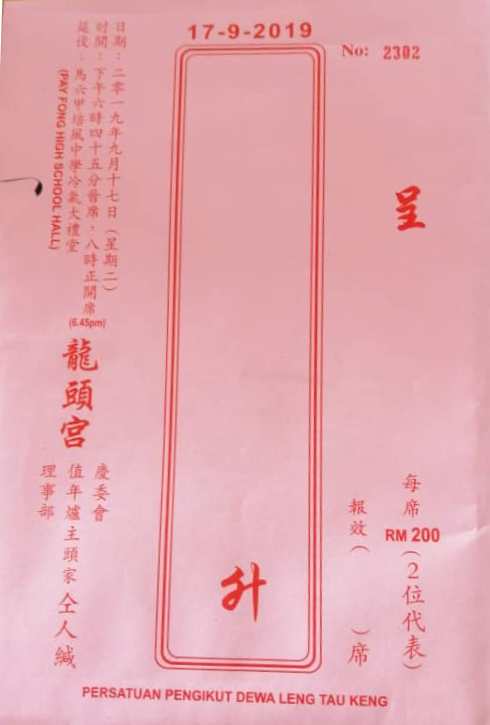 17-9-2019
No: 2302
呈
每席 RM 200 (2位代表)
報效 ( ) 席
升
日期：二零一九年九月十七日（星期二）
时間：下午六時四十五分晉席，八時正開席
(6.45pm)
筵設：馬六甲培風中學冷氣大禮堂
(PAY FONG HIGH SCHOOL HALL)
龍頭宮
慶委會
值年爐主頭家 仝人緘
理事部
PERSATUAN PENGIKUT DEWA LENG TAU KENG